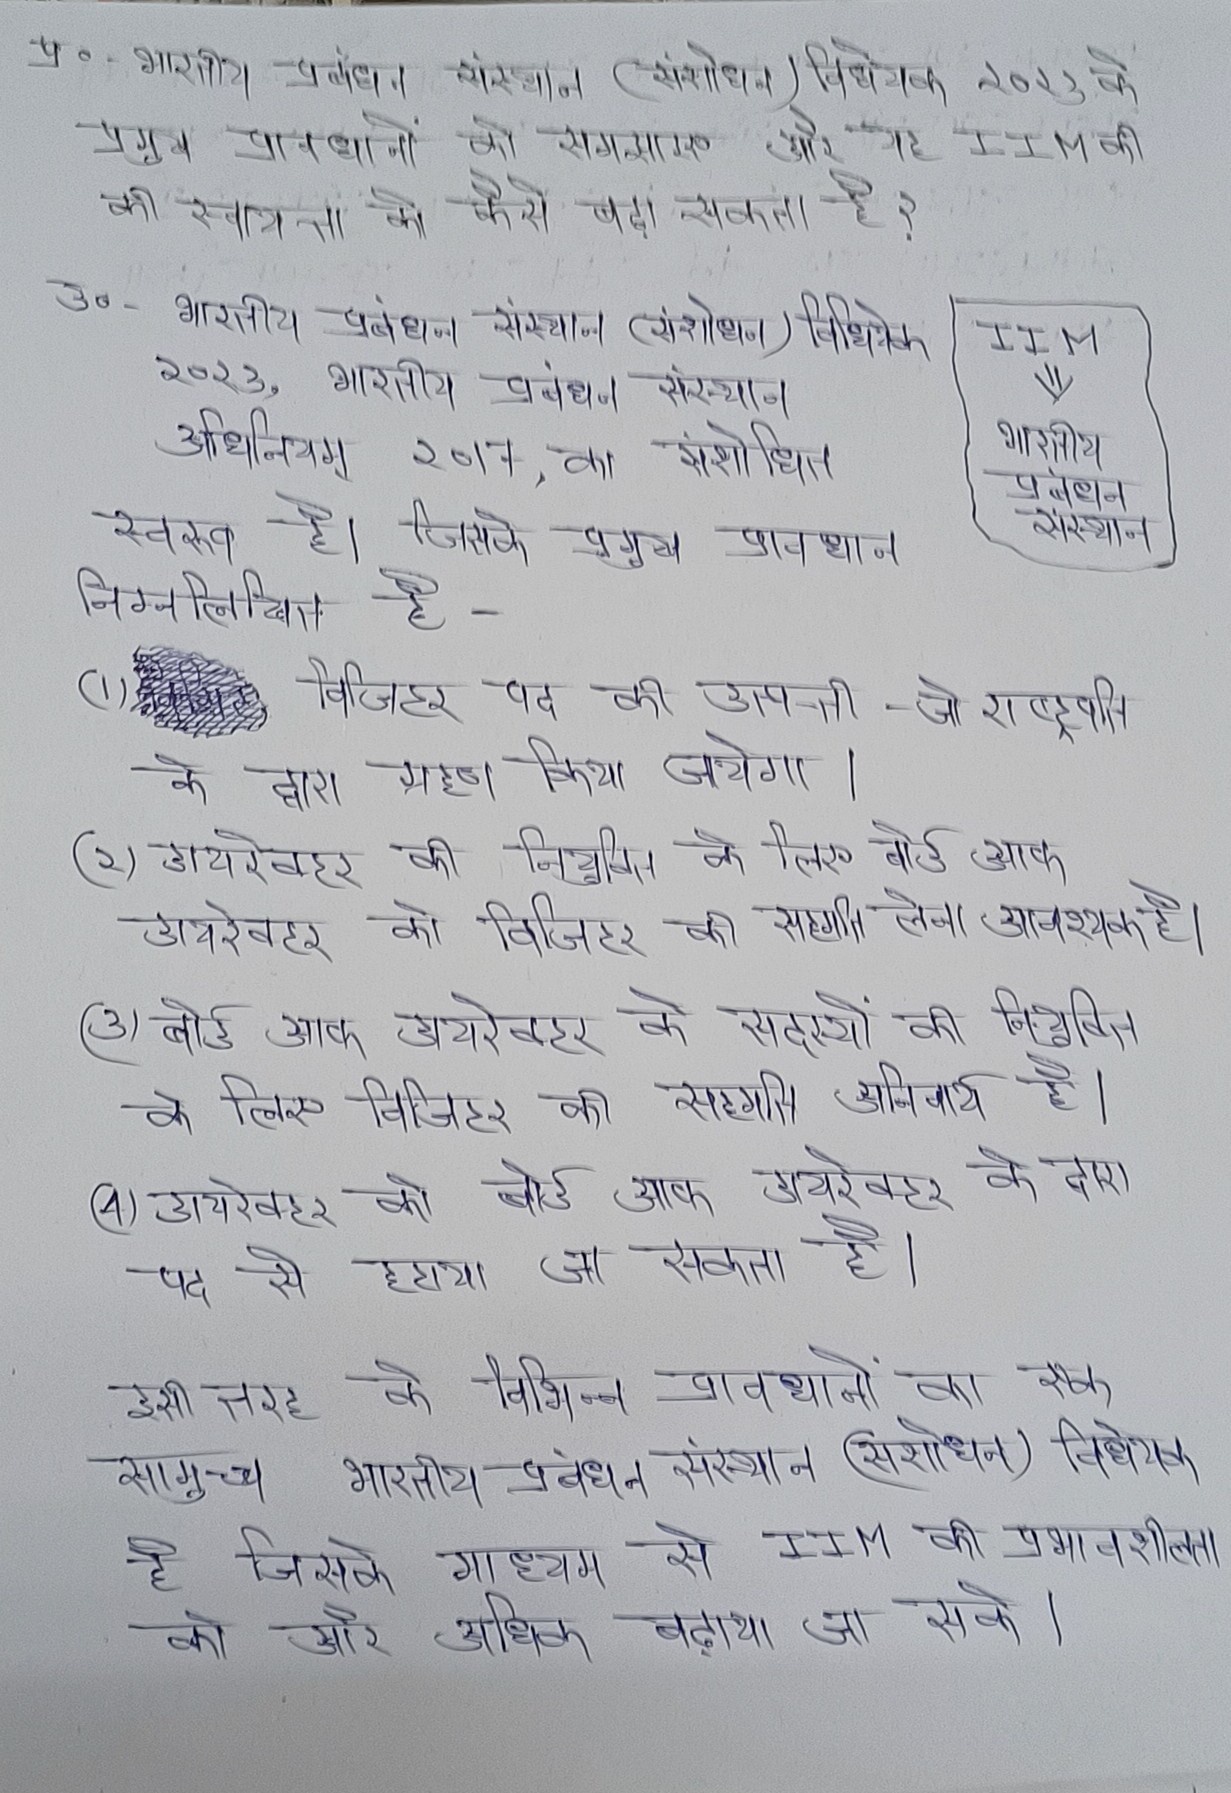 प्र०- भारतीय प्रबंधन संस्थान (संशोधन) विधेयक २०२३ के
प्रमुख प्रावधानों को समझाए और यह IIM की
की स्वात्रत्ता को कैसे बढ़ा सकता है?
उ०- भारतीय प्रबंधन संस्थान (संशोधन) विधियेक
२०२३, भारतीय प्रबंधन संस्थान
अधिनियम २०१७, का संशोधित
स्वरूप है। जिसके प्रमुख प्रावधान
निम्नलिखित है -
IIM
⇓
भारतीय
प्रबंधन
संस्थान
(1) विजिटर पद की उत्पत्ती - जो राष्ट्रपति
के द्वारा ग्रहण किया जायेगा।
(२) डायरेक्टर की नियुक्ति के लिए बोर्ड आफ
डायरेक्टर को विजिटर की सहमति लेना आवश्यक है।
(३) बोर्ड आफ डायरेक्टर के सदस्यों की नियुक्ति
के लिए विजिटर की सहमति अनिवार्य है।
(4) डायरेक्टर को बोर्ड आफ डायरेक्टर के द्वारा
पद से हटाया जा सकता है।
इसी तरह के विभिन्न प्रावधानों का एक
सामुच्च्य भारतीय प्रबंधन संस्थान (संशोधन) विधेयक
है जिसके माध्यम से IIM की प्रभावशीलता
को और अधिक बढ़ाया जा सके।